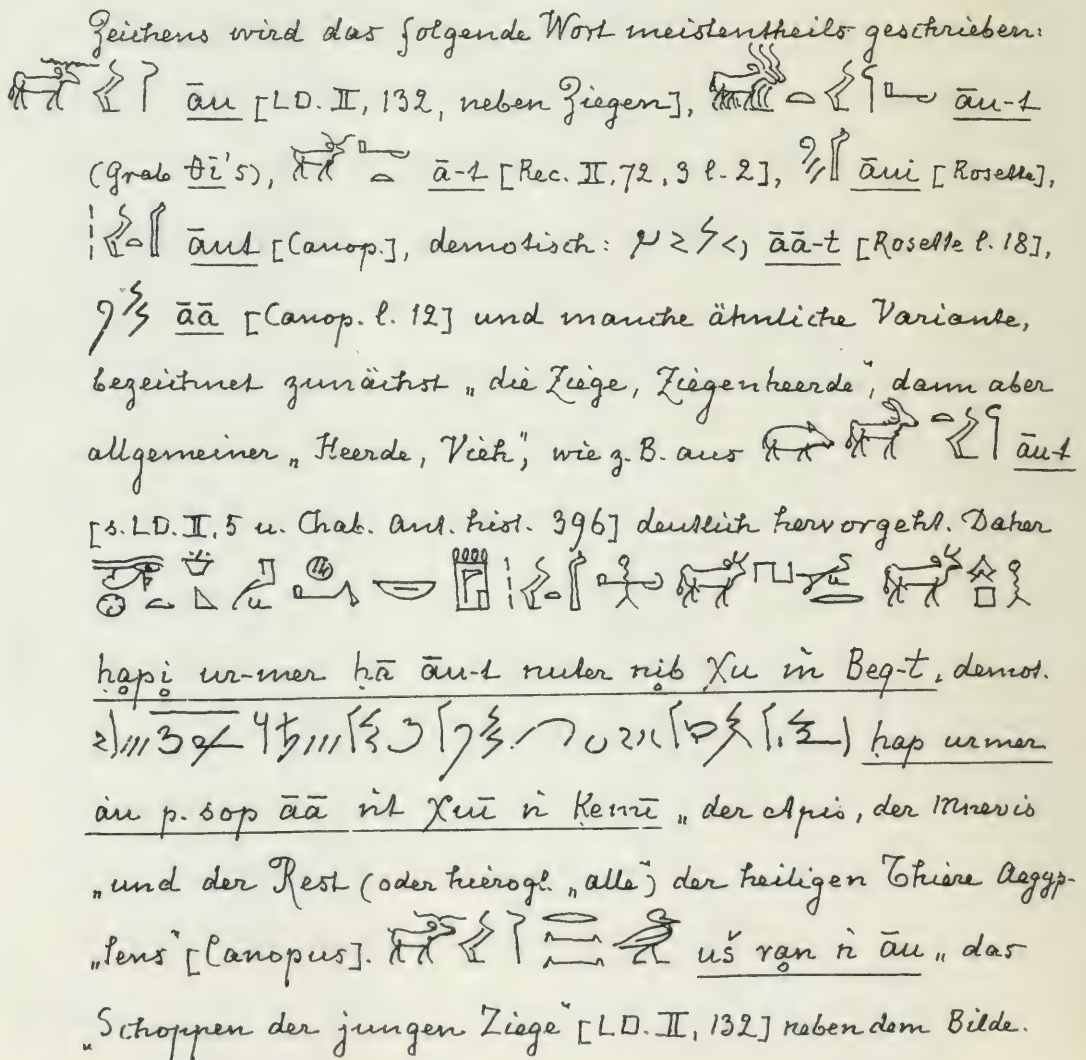 Zeichens wird das folgende Wort meistentheils geschrieben:
āu [LD. II, 132, neben Ziegen], āu-t
(Grab Θi's), ā-t [Rec. II, 72, 3 l. 2], āui [Rosette],
āut [Canop.], demotisch: āā-t [Rosette l. 18],
āā [Canop. l. 12] und manche ähnliche Variante,
bezeichnet zunächst „die Ziege, Ziegenheerde“, dann aber
allgemeiner „Heerde, Vieh“, wie z. B. aus āu-t
[s. LD. II, 5 u. Chab. ant. hist. 396] deutlich hervorgeht. Daher
ḥapi ur-mer ḥā āu-t nuter nib χu m Beq-t, demot.
ḥap urmer
àu p. sop āā nt χuū n Kemī „der Apis, der Mnevis
„und der Rest (oder hierogl. „alle“) der heiligen Thiere Aegyp-
„tens“ [Canopus]. uš ran n āu „das
„Schoppen der jungen Ziege“ [LD. II, 132] neben dem Bilde.